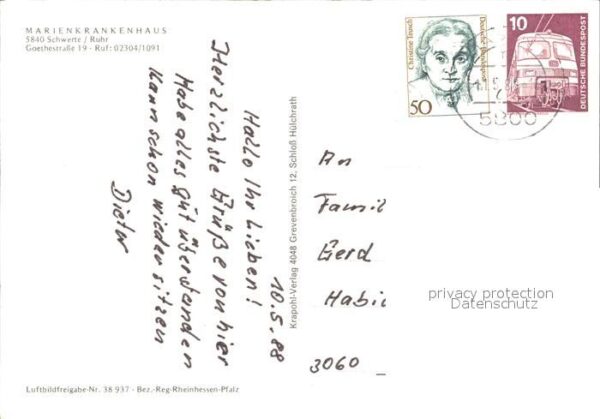 MARIENKRANKENHAUS
5840 Schwerte / Ruhr
Goethestraße 19 · Ruf: 02304/1091
10.5.88
Hallo Ihr Lieben!
Herzlichste Grüße von hier
Habe alles gut überstanden
Kann schon wieder sitzen
Dieter
Krapohl-Verlag 4048 Grevenbroich 12, Schloß Hülchrath
Christine Teusch
Deutsche Bundespost
50
10
DEUTSCHE BUNDESPOST
5800
An
Famil
Gerd
Habic
3060
privacy protection
Datenschutz
Luftbildfreigabe-Nr. 38 937 - Bez.-Reg-Rheinhessen-Pfalz